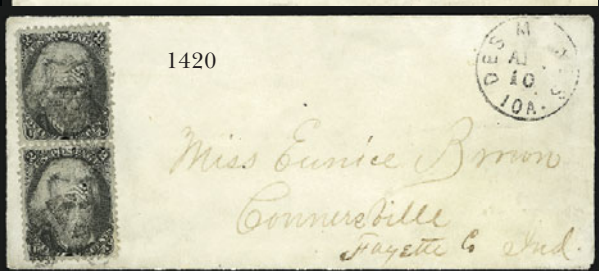 1420
DES M S
AP.
10
IOA.
Miss Eunice Brown
Connersville
Fayette Co Ind.